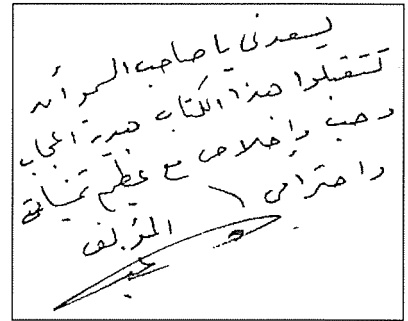 يسعدني يا صاحب السمو أن
تتقبلوا هذا الكتاب هدية اعجاب
وحب وإخلاص مع عظيم تمنياتي
واحترامي
المؤلف